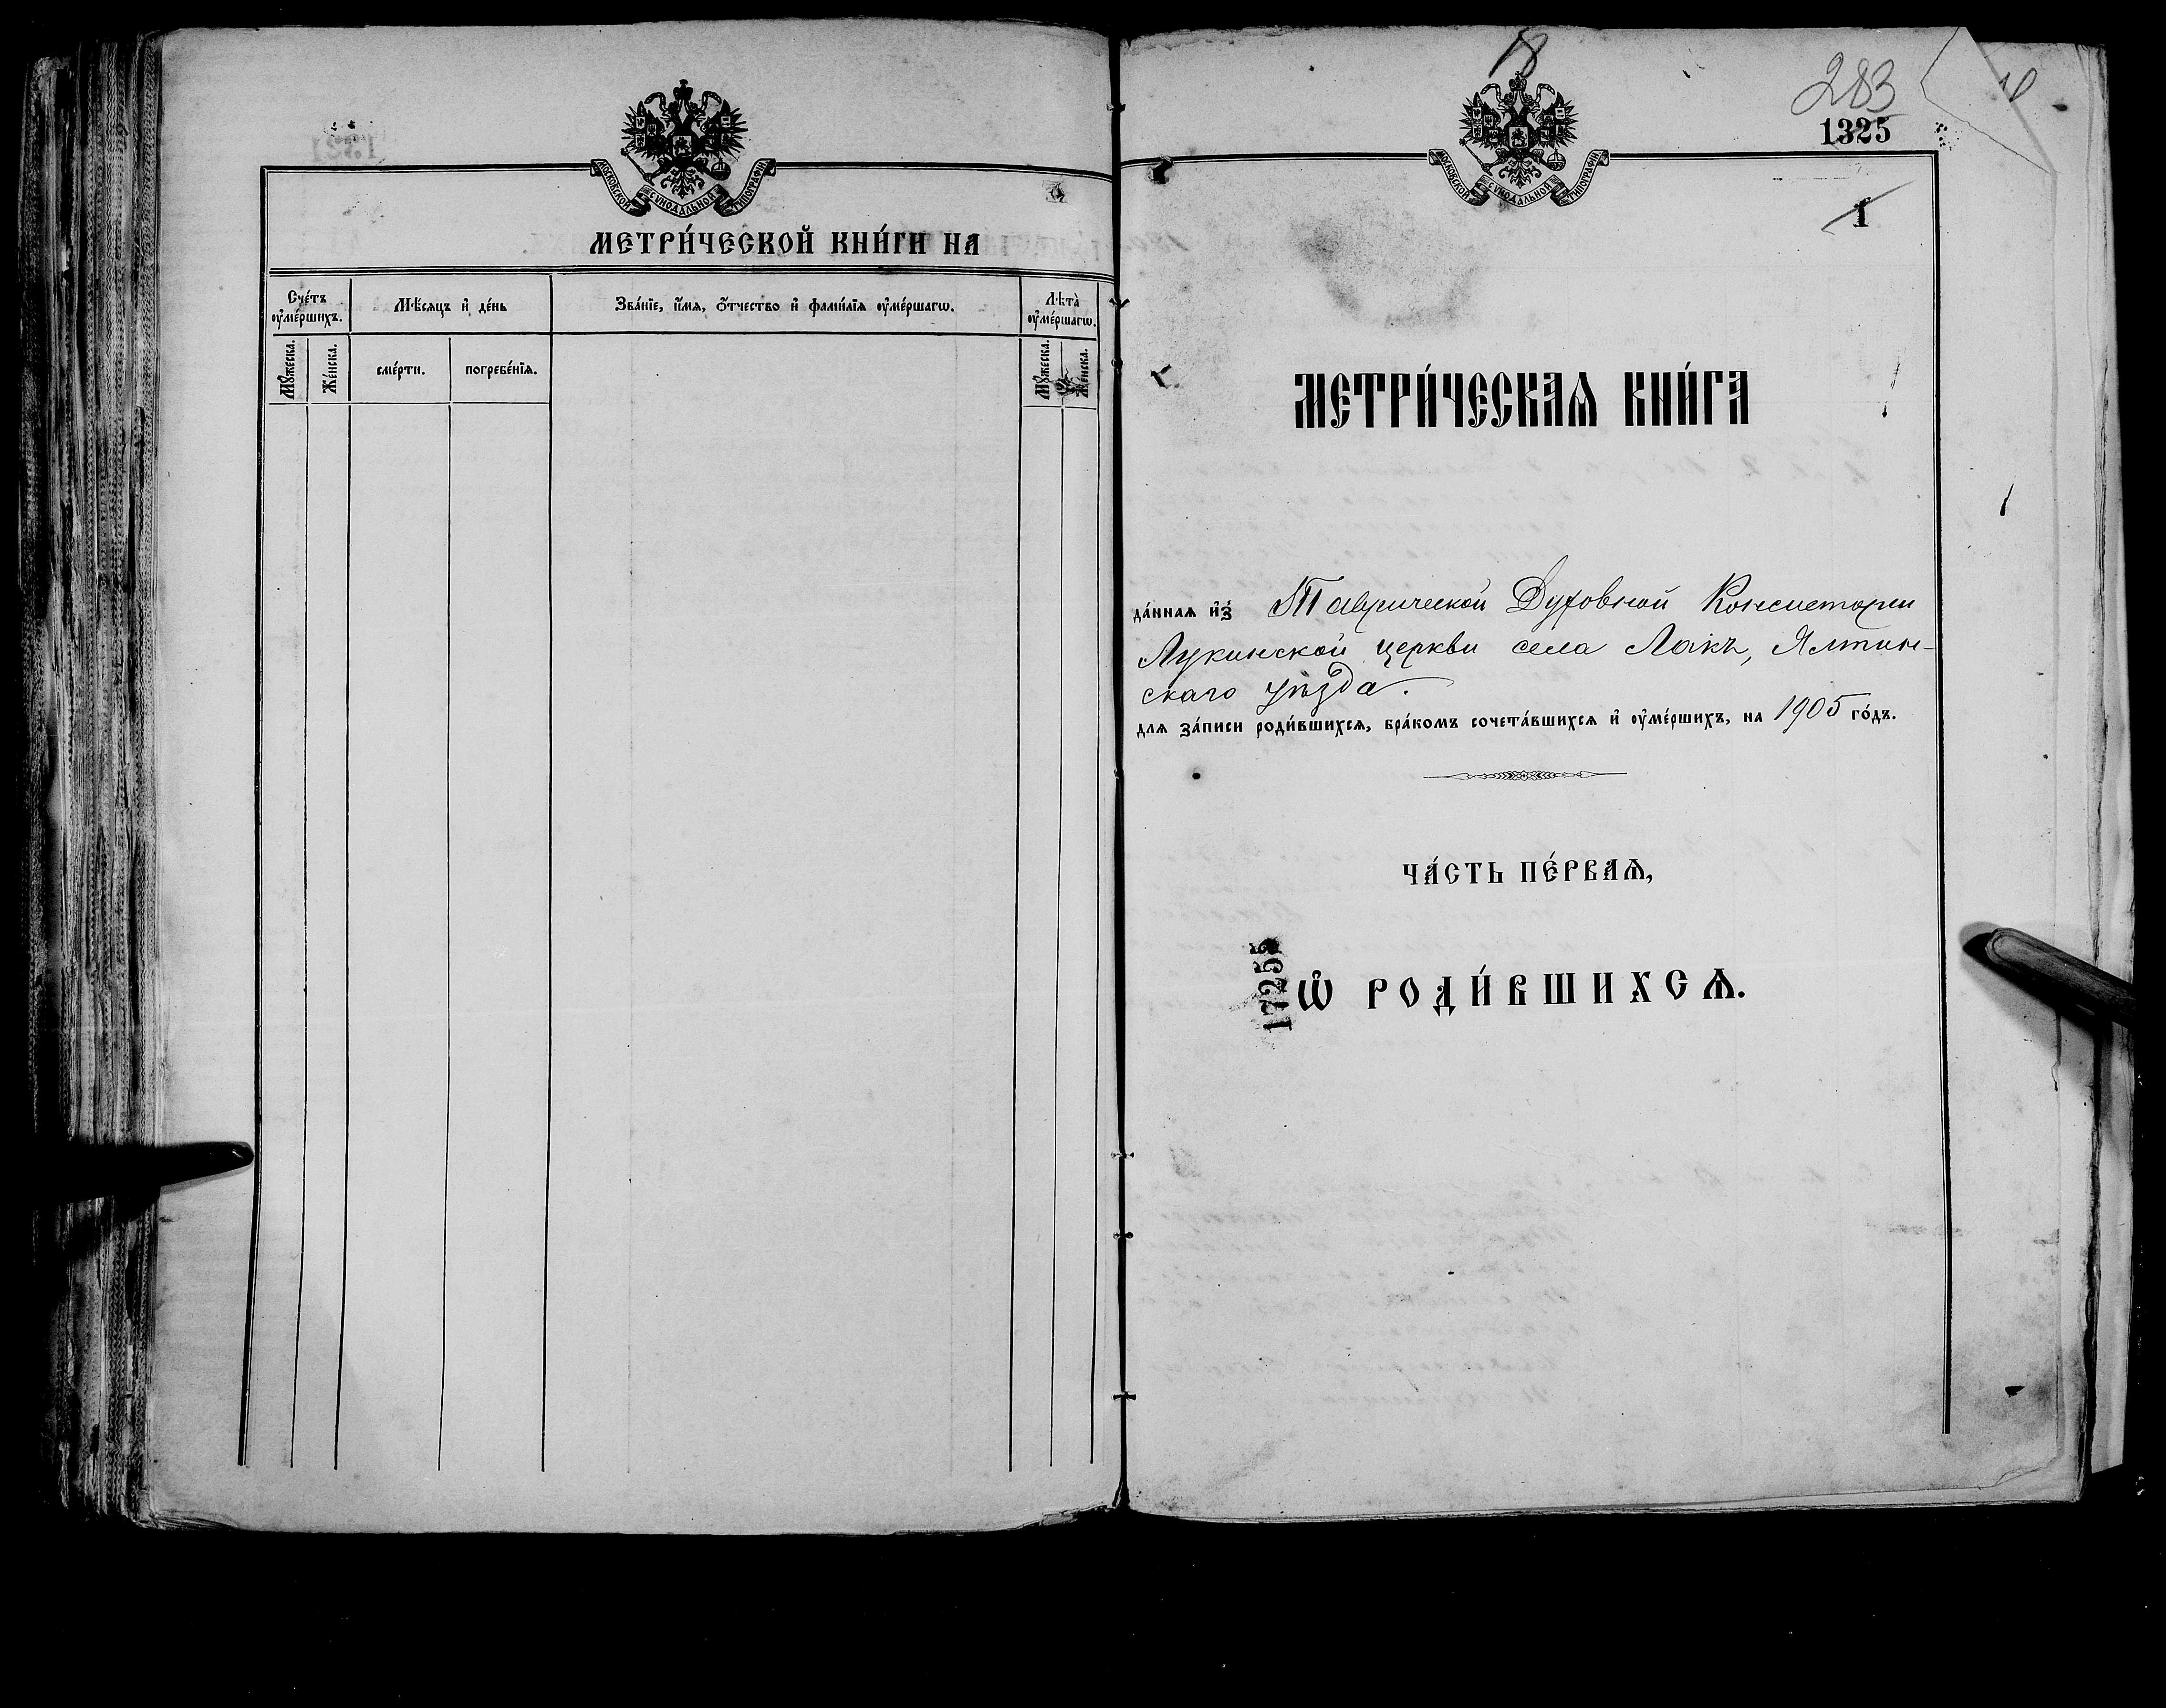 МОСКОВСКОЙ СѴНОДАЛЬНОЙ ТИПОГРАФІИ
МЕТРИ́ЧЕСКОЙ КНИ́ГИ НА
Сче́тъ ᲂу҆ме́ршихъ.
Мѣ́сяцъ и҆ де́нь
Зва́нїе, и҆́мѧ, ѻ҆́тчество и҆ фами́лїѧ ᲂу҆ме́ршагѡ.
Лѣ́та ᲂу҆ме́ршагѡ.
Мꙋ́жеска.
Же́нска.
сме́рти.
погребе́нїѧ.
Мꙋ́жеска.
Же́нска.
18
283
1325
МОСКОВСКОЙ СѴНОДАЛЬНОЙ ТИПОГРАФІИ
1
МЕТРИ́ЧЕСКАѦ КНИ́ГА
да́ннаѧ и҆з̾ Таврической Духовной Консистории
Лукинской церкви села Лакъ, Ялтин-
скаго уѣзда.
длѧ за́писи роди́вшихсѧ, бра́комъ сочета́вшихсѧ и҆ ᲂу҆ме́ршихъ, на 1905 го́дъ.
ЧА́СТЬ ПЕ́РВАѦ,
Ѽ РОДИ́ВШИХСѦ.
17255